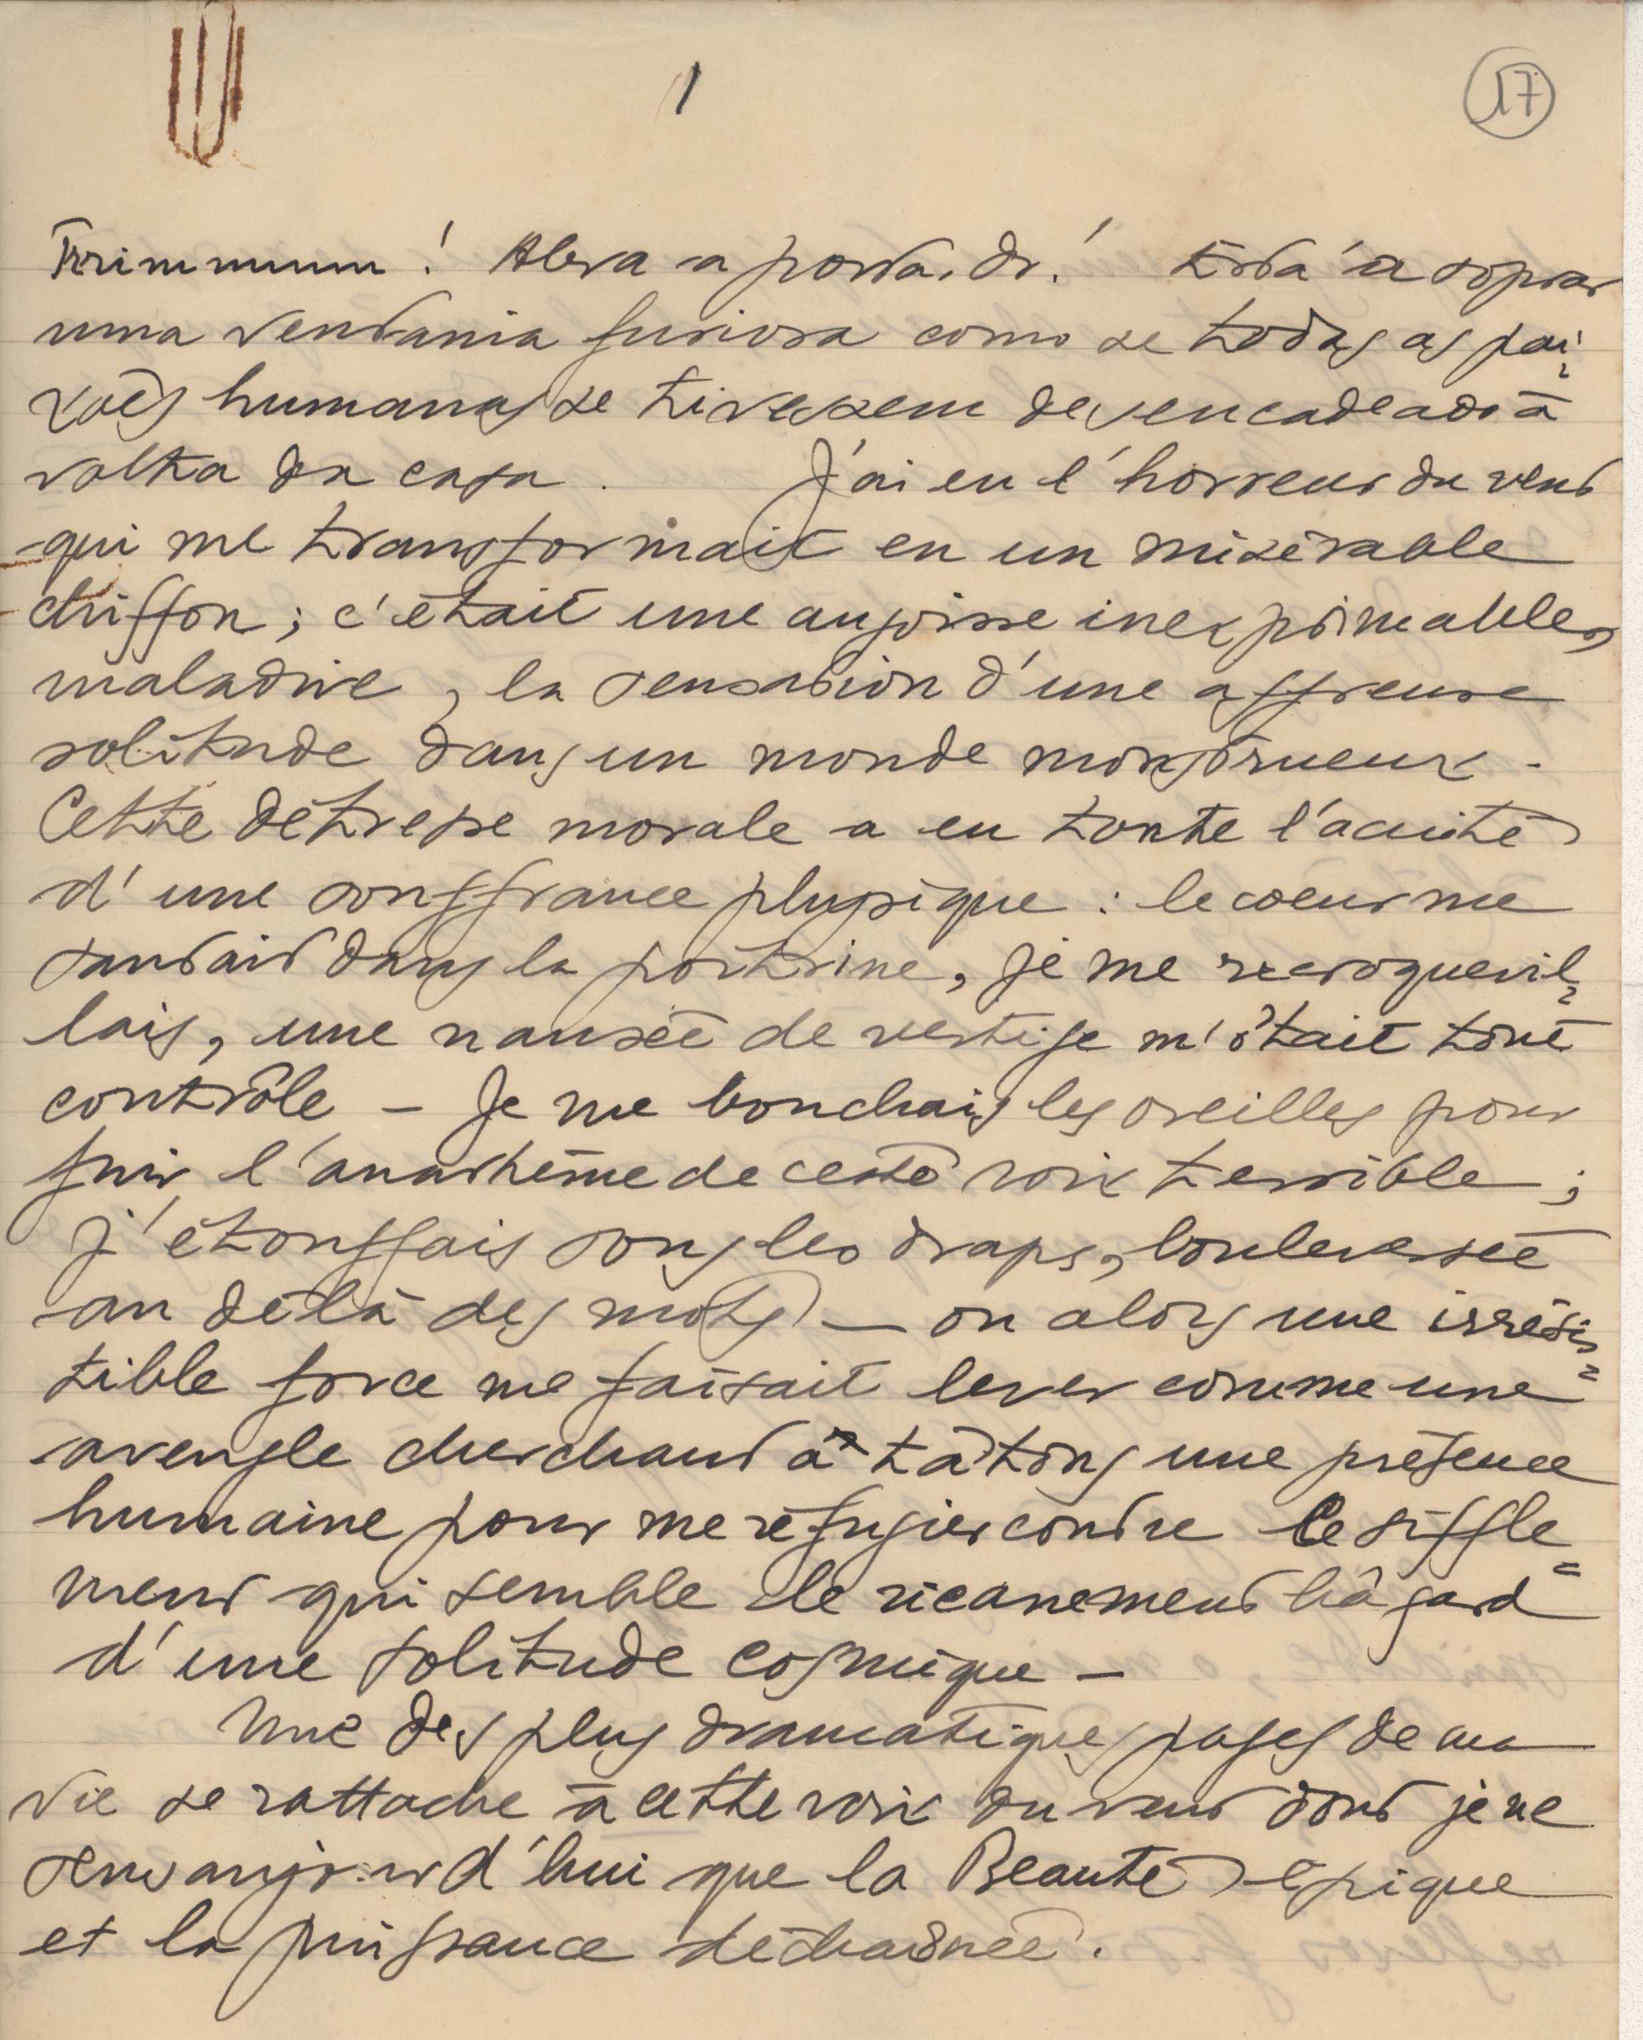 1
17
Trrimmmmm! Abra a porta, Dr.! Está a soprar
uma ventania furiosa como se todas as pai=
xões humanas se tivessem desencadeado à
volta da casa. J'ai eu l'horreur du vent
qui me transformait en un misérable
chiffon; c'était une angoisse inexprimable,
maladive, la sensation d'une affreuse
solitude dans un monde monstrueux.
Cette détresse morale a eu toute l'acuité
d'une souffrance physique: le coeur me
sautait dans la poitrine, je me recroquevil=
lais, une nausée de vertige m'ôtait tout
contrôle – Je me bouchais les oreilles pour
fuir l'anathème de cette voix terrible;
j'étouffais sous les draps, bouleversée
au délà des mots – ou alors une irrésis=
tible force me faisait lever comme une
aveugle cherchant à tâtons une présence
humaine pour me réfugier contre le siffle=
ment qui semble le ricanement hâgard
d'une solitude cosmique –
Une des plus dramatiques pages de ma
vie se rattache à cette voix du vent dont je ne
sens aujourd'hui que la Beauté épique
et la puissance déchaînée.